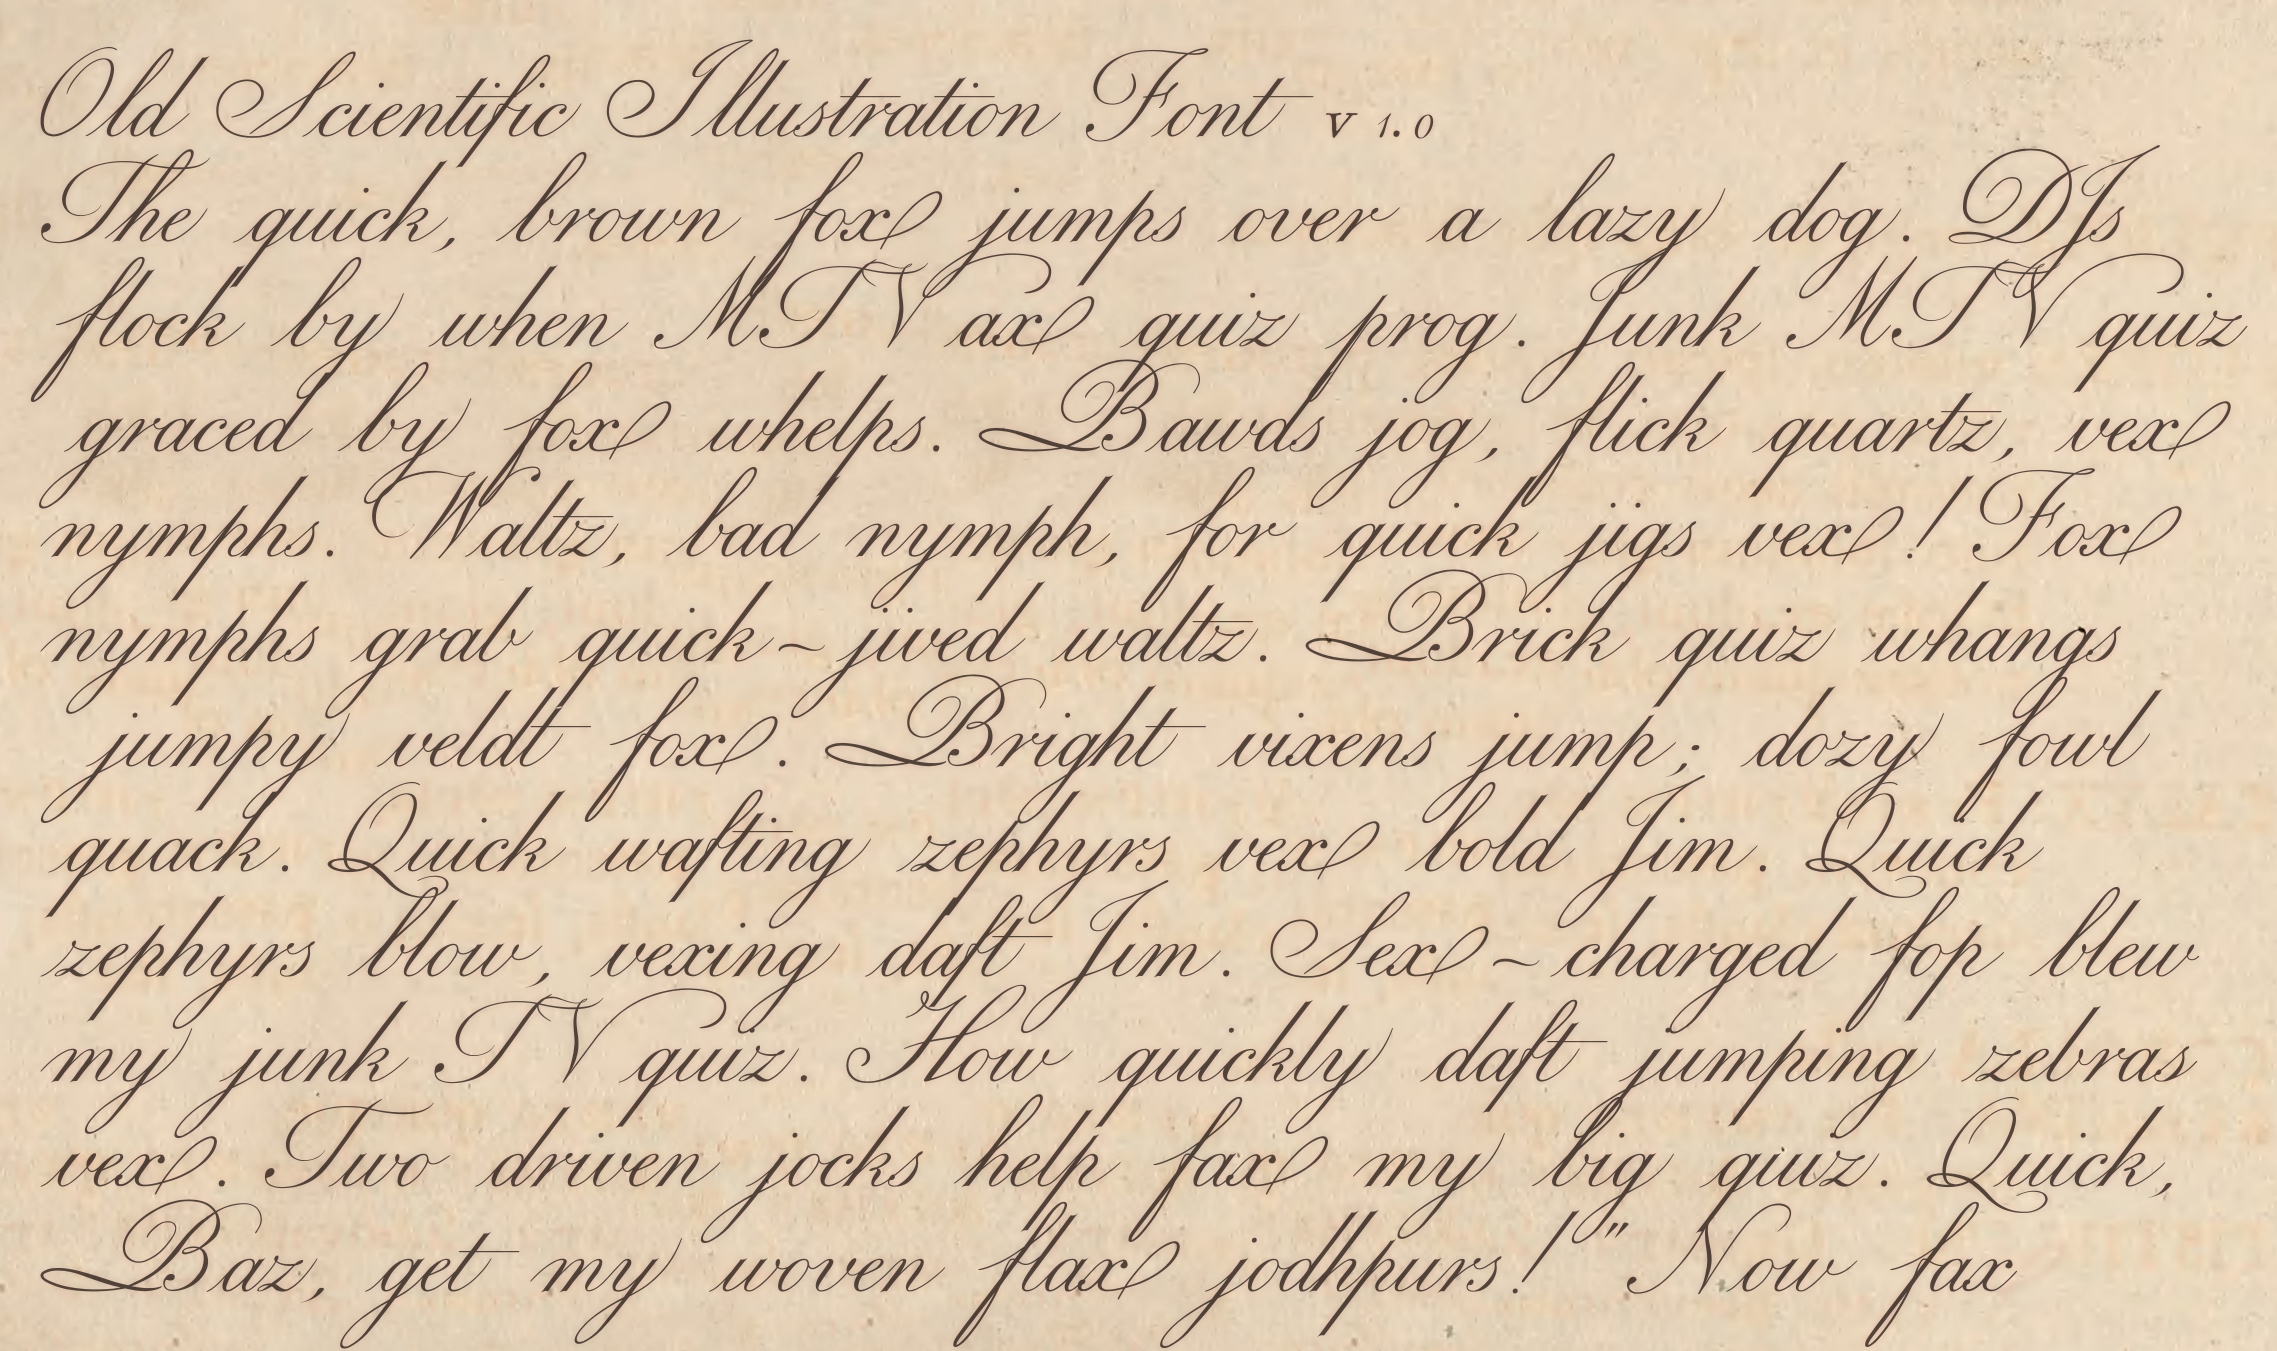 Old Scientific Illustration Font v 1.0
The quick, brown fox jumps over a lazy dog. DJs
flock by when MTV ax quiz prog. Junk MTV quiz
graced by fox whelps. Bawds jog, flick quartz, vex
nymphs. Waltz, bad nymph, for quick jigs vex! Fox
nymphs grab quick~jived waltz. Brick quiz whangs
jumpy veldt fox. Bright vixens jump; dozy fowl
quack. Quick wafting zephyrs vex bold Jim. Quick
zephyrs blow, vexing daft Jim. Sex~charged fop blew
my junk TV quiz. How quickly daft jumping zebras
vex. Two driven jocks help fax my big quiz. Quick,
Baz, get my woven flax jodhpurs! "Now fax